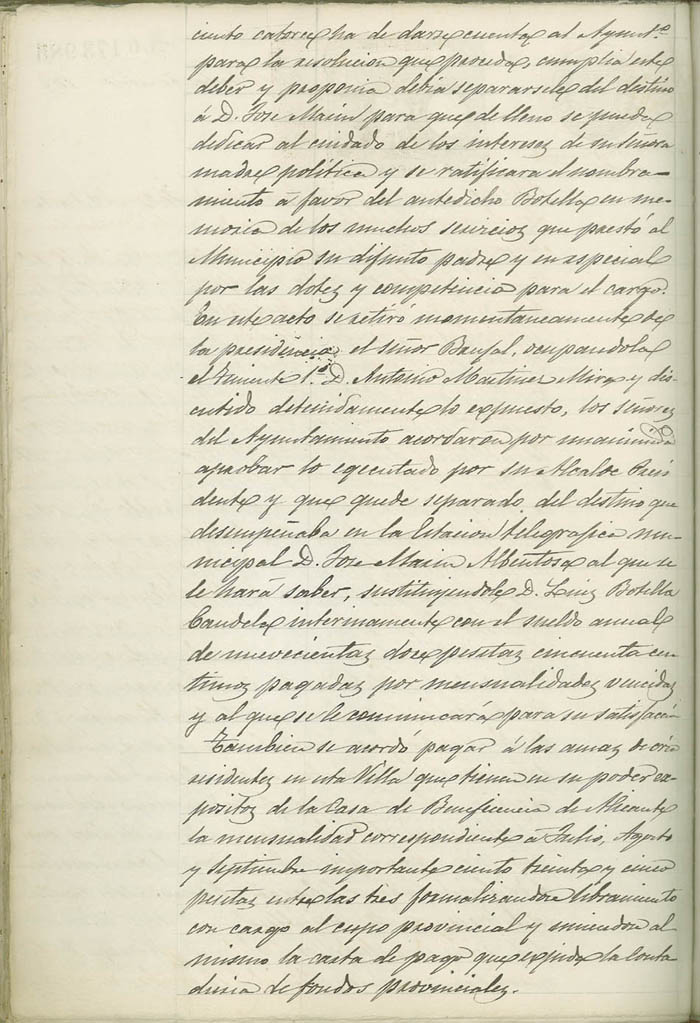 ciento catorce ha de darse cuenta al Ayunt.º
para la resolucion que proceda, cumplia este
deber y proponia debia separarsele del destino
á D. Jose Maciá para que de lleno se pueda
dedicar al cuidado de los intereses de su Señora
madre politica y se ratificara el nombra-
miento á favor del antedicho Botella en me-
moria de los muchos servicios que prestó al
Municipio su difunto padre y en especial
por las dotes y competencia para el cargo.
En este acto se retiró momentaneamente de
la presidencia el Señor ocupandola
el Teniente 1.º D. Antonio Martinez Mira y dis-
cutido detenidamente lo expuesto, los Señores
del Ayuntamiento acordaron por unanimidad
aprobar lo egecutado por su Alcalde Presi
dente y que quede separado del destino que
desempeñaba en la Estacion telegrafica mu-
nicipal D. Jose Albentosa al que se
le hará saber, sustituyendole D. Luis Botella
Candela interinamente con el sueldo anual
de nuevecientas doce pesetas cincuenta cen
timos pagadas por mensualidades vencidas
y al que se le comunicará para su satisfacción
Tambien se acordó pagar á las amas de cria
residentes en esta Villa que tienen en su poder ex-
positos de la Casa de Beneficencia de Alicante
la mensualidad correspondiente á Julio, Agosto
y Septiembre importante ciento treinta y cinco
pesetas entre las tres formalizandose libramiento
con cargo al cupo provincial y uniendose al
mismo la carta de pago que expida la Conta
duria de fondos provinciales.